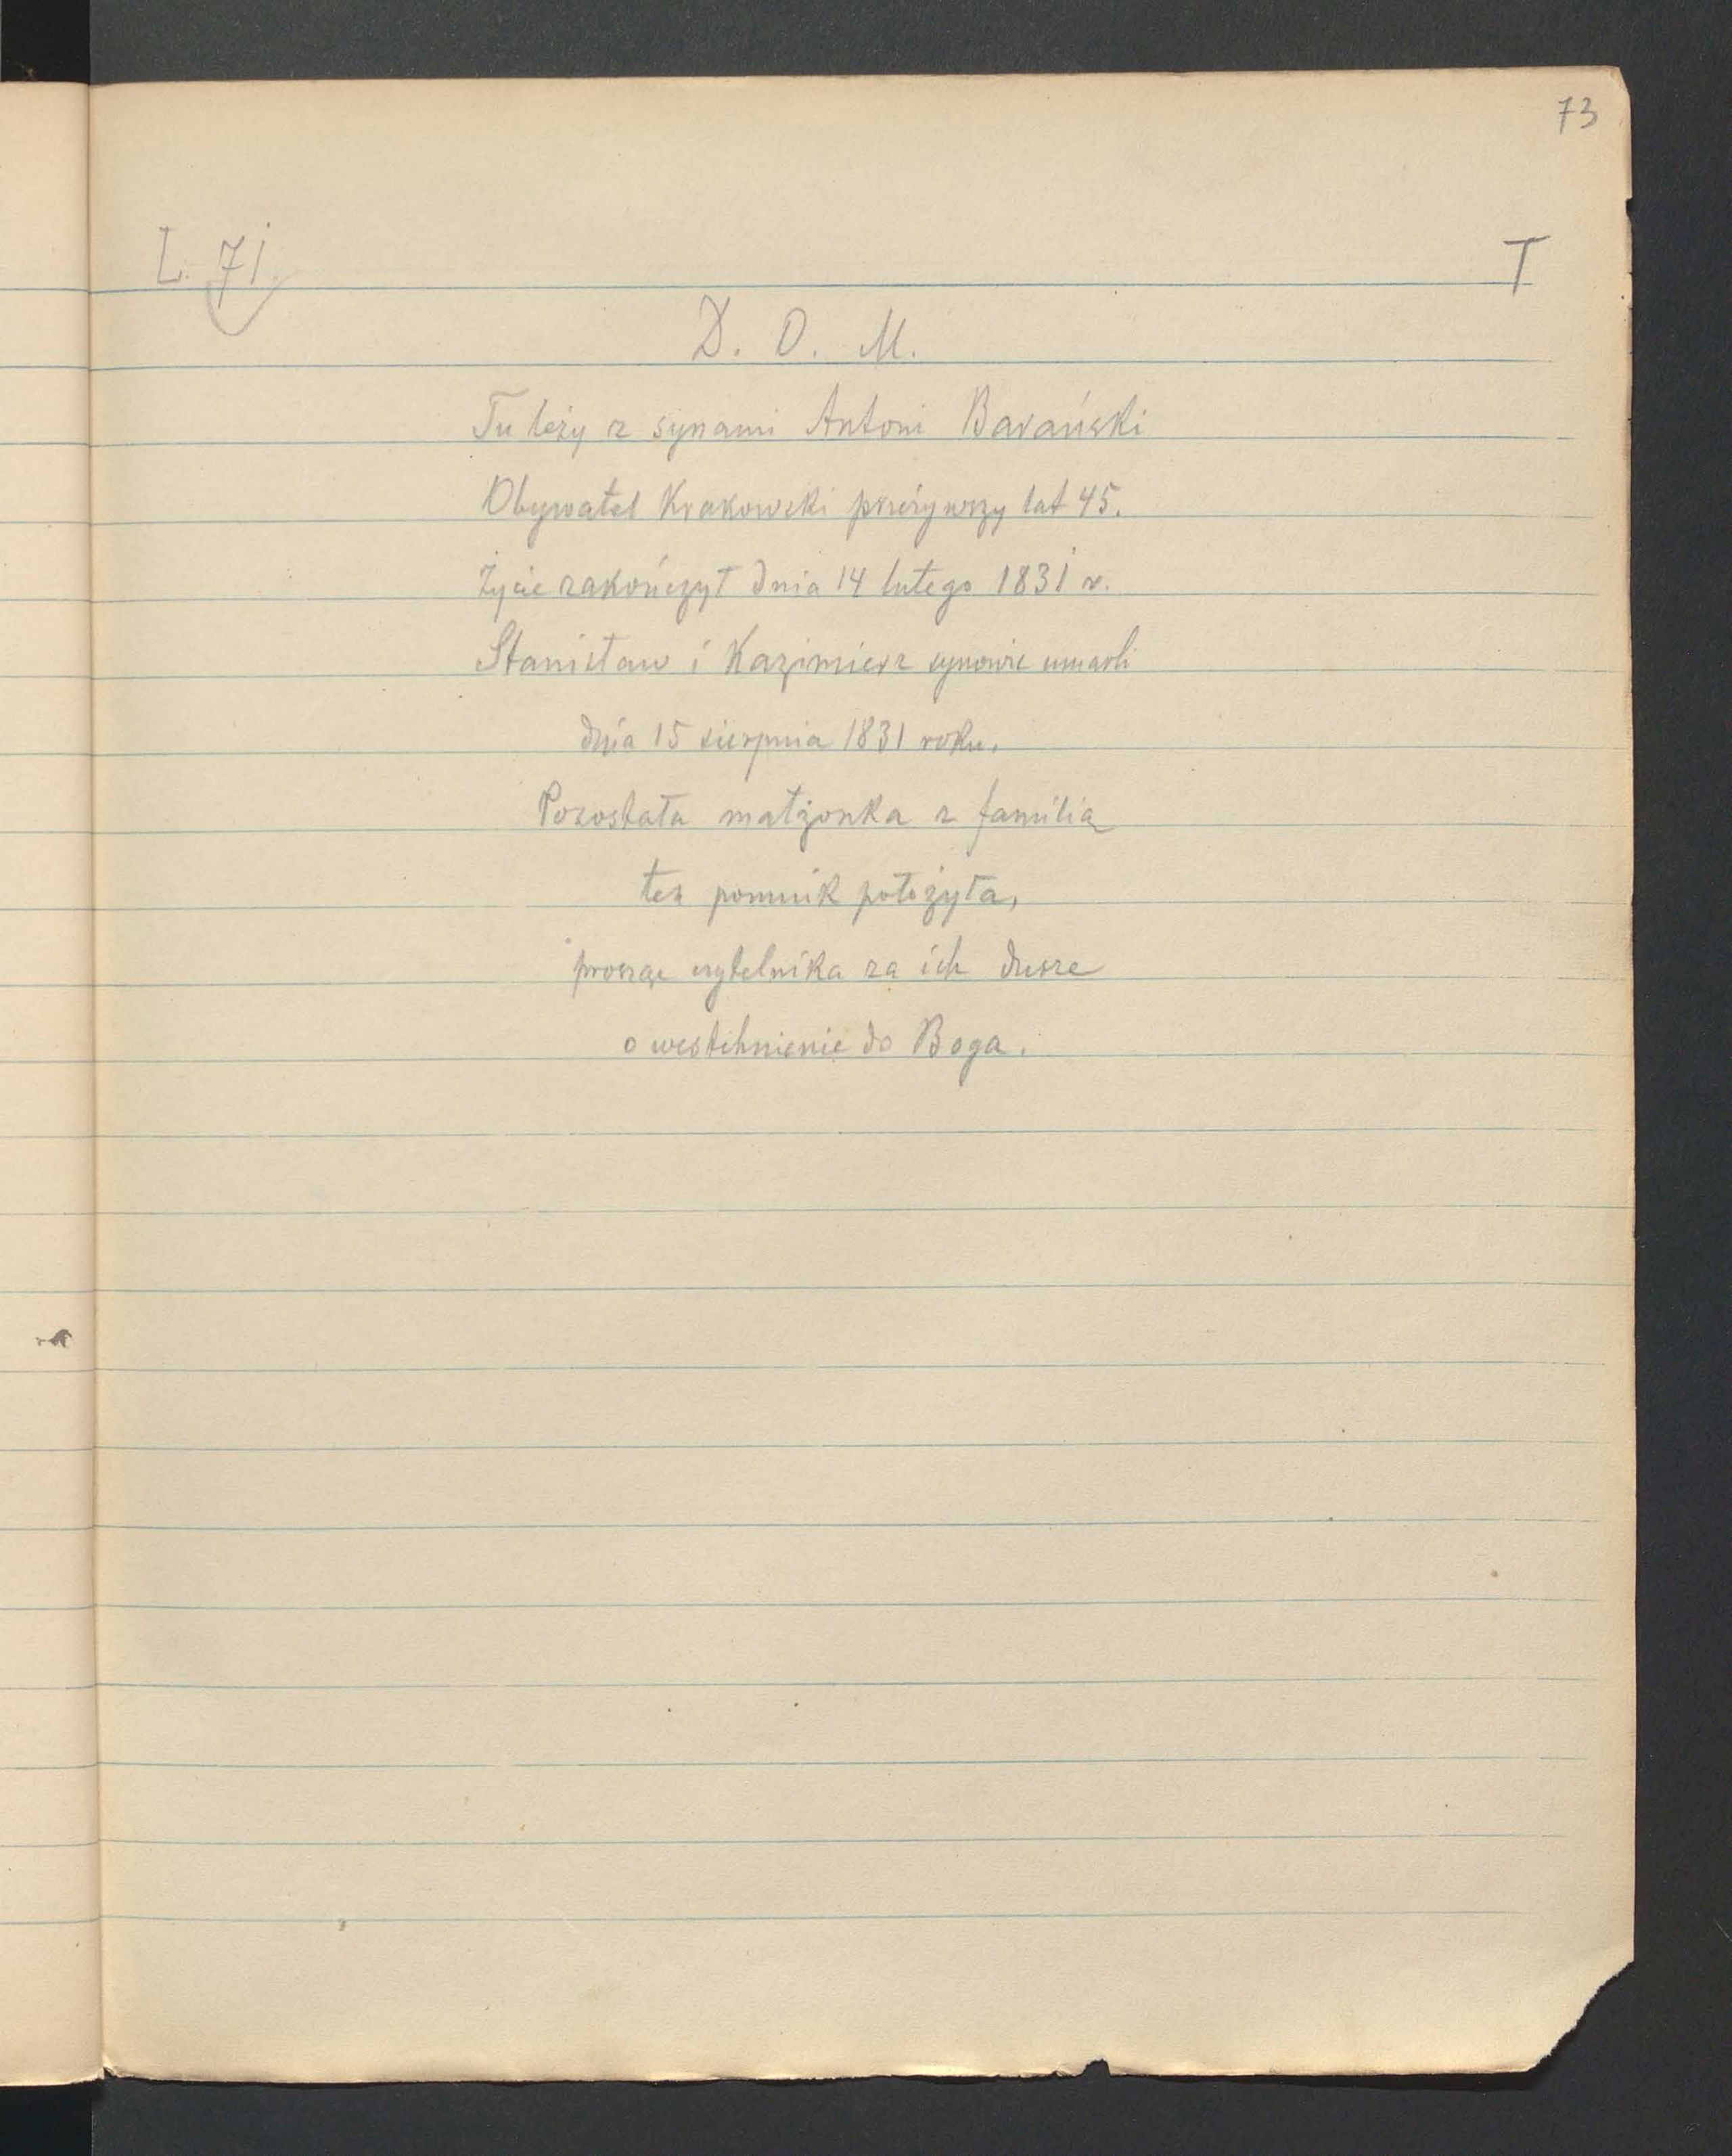 73
L. 71 T
D. O. M.
Tu leży z synami Antoni Barański
Obywatel Krakowski przeżywszy lat 45.
Życie zakończył dnia 14 lutego 1831 r.
Stanisław i Kazimierz synowie umarli
dnia 15 sierpnia 1831 roku.
Pozostała małżonka z familią
ten pomnik położyła,
prosząc czytelnika za ich dusze
o westchnienie do Boga.